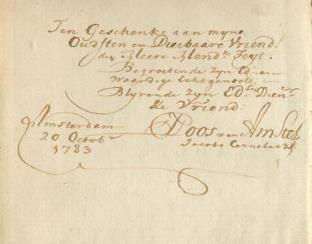 Ten Geschenke aan myne
Oudsten en Dierbaare Vriend.
den Heere Mend. Feyt.
Begroetende zyn Ed. en
waardige Echtgenoote, en
Blyvende zyn Ed. Dien
de Vriend.
Amsterdam
20 Octob
1783
Ploos van Amstel
Jacobs Cornelisz